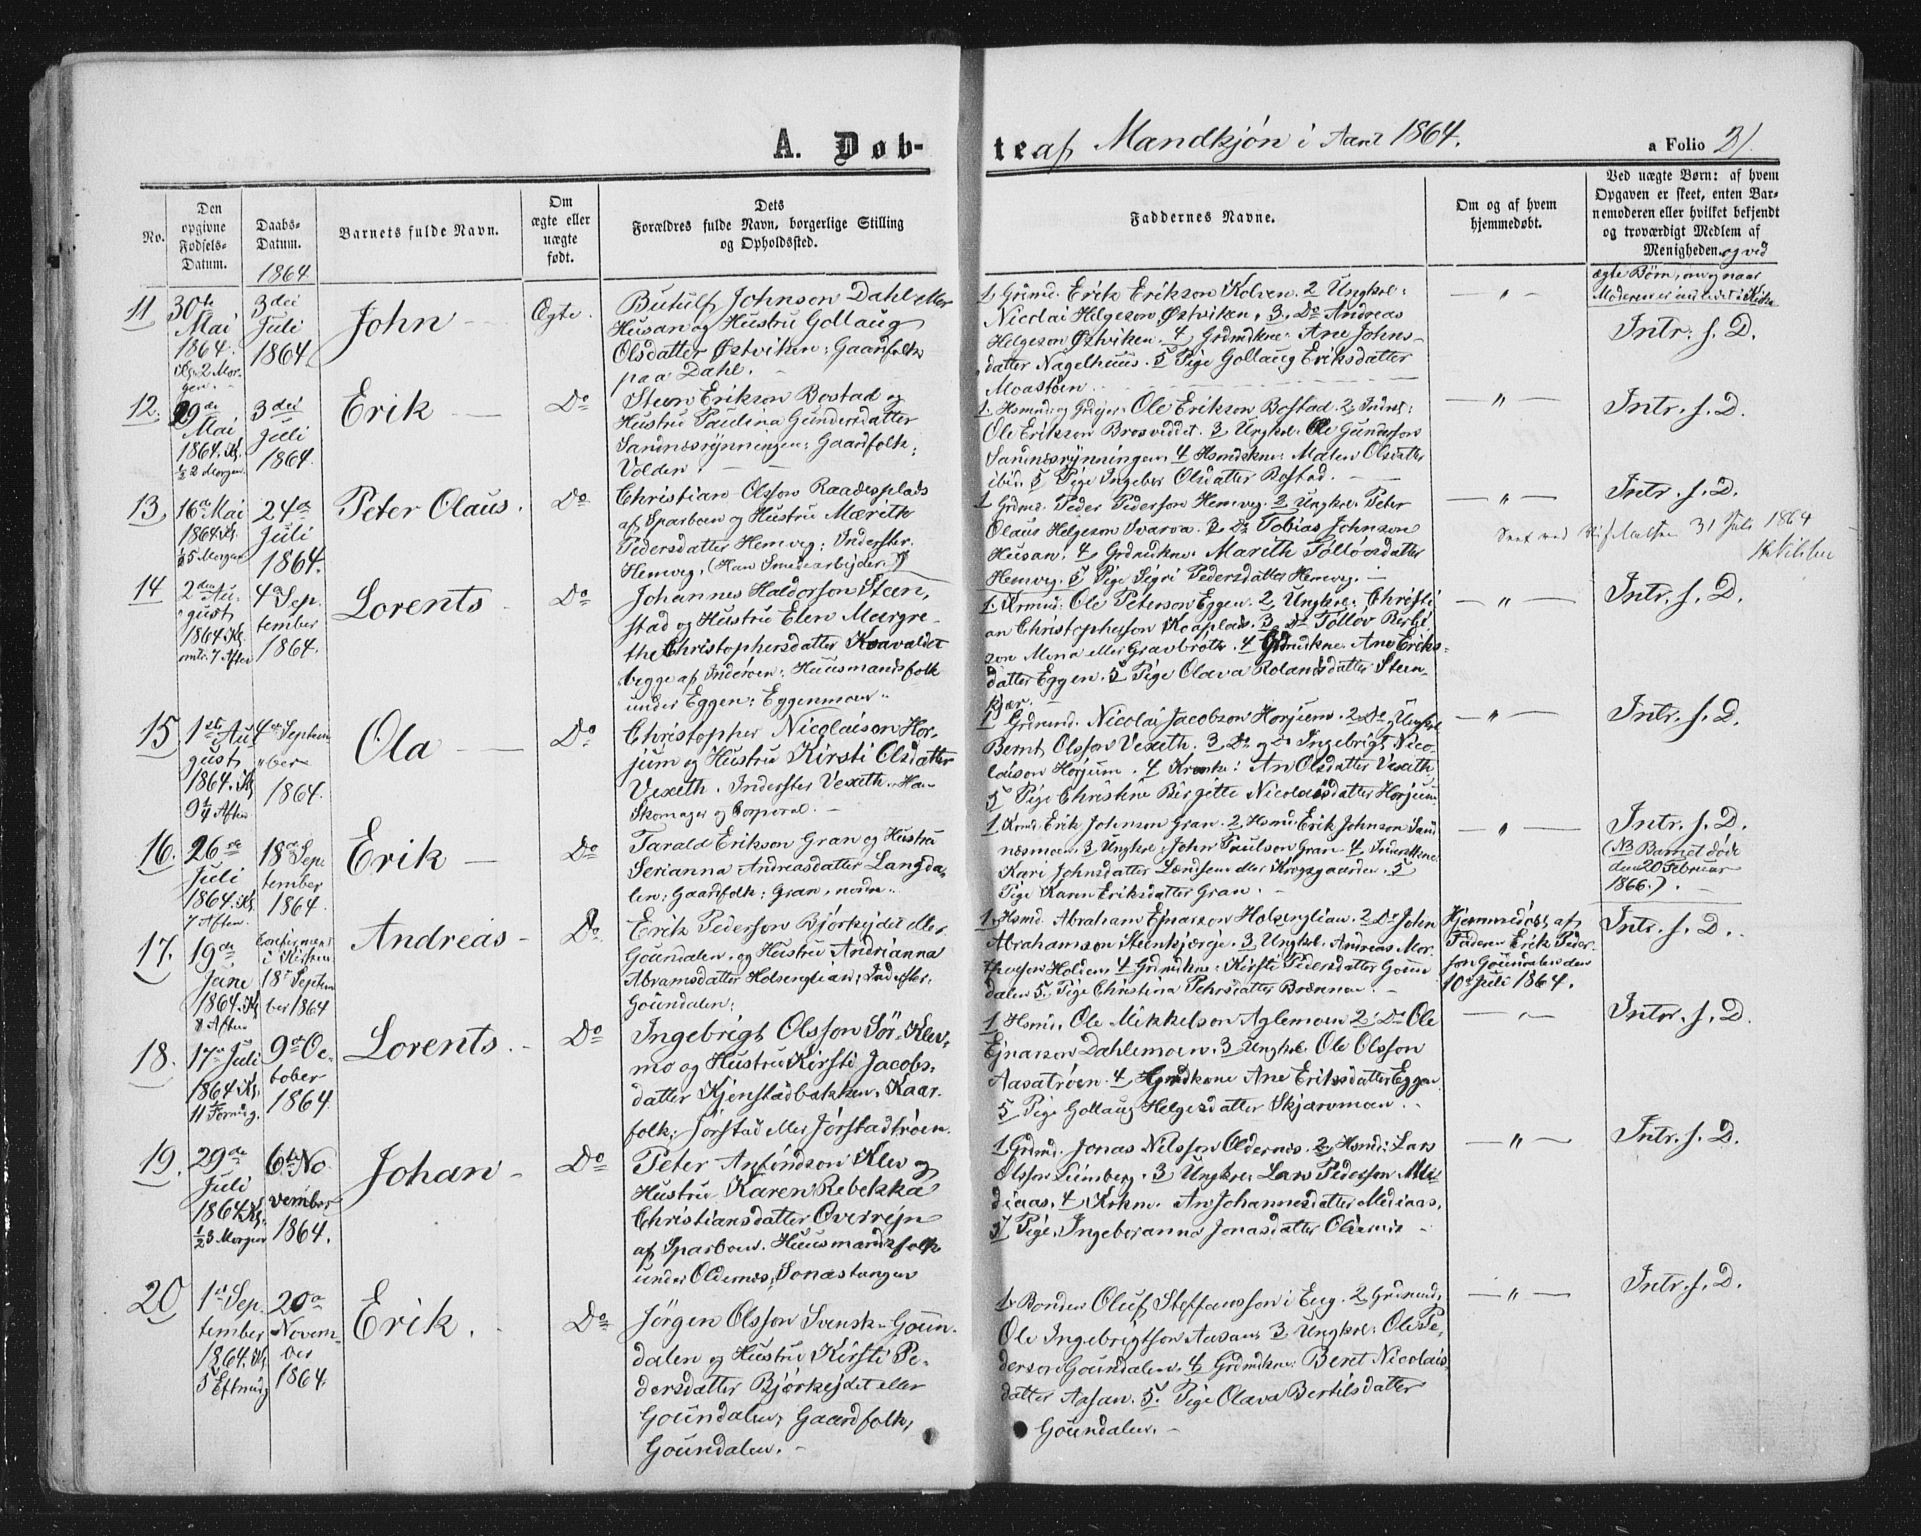 A. Døb-
te af Mandkjøn i Aaret 1864.
a Folio 21.
No.
Den opgivne Fødsels-Datum.
Daabs-Datum.
1864
Barnets fulde Navn.
Om ægte eller uægte født.
Dets Forældres fulde Navn, borgerlige Stilling og Opholdssted.
Faddernes Navne.
Om og af hvem hjemmedøbt.
Ved uægte Børn: af hvem
Opgaven er skeet, enten Bar-
nemoderen eller hvilket bekjendt
og troværdigt Medlem af
Menigheden. og ved
ægte Børn, om og naar
Moderen er indledet i Kirke
11
30te
Mai
1864.
Kl. 2 Mor-
gen.
3die
Juli
1864
John
Ægte.
Butulf Johnson Dahl
Husan og Hustru Gollaug
Olsdatter Østviken: Gaardfolk
paa Dahl.
1, Grdmd. Erik Erikson Kolven. 2 Ungkrl:
Nicolai Helgeson Østviken, 3, Do Andreas
Helgeson Østviken. 4 Grdmdkne: Ane Johns-
datter Nagelhuus. 5 Pige Gollaug Eriksdatter
Moastøen
— " —
Intr: f. D.
12.
29de
Mai
1864. Kl.
½ 2 Morgen
3die
Juli
1864.
Erik
Do
Steen Erikson Bostad og
Hustru Paulina Gundersdatter
Sandnesrynningen: Gaardfolk:
Volden
1. Hsmd og Grdejer: Ole Erikson Bostad. 2, Indst:
Ole Erikson Brosveddet. 3 Ungkrl. Ole Gunderson
Sandnesrynningen, 4 Hsmdskne: Malen Olsdatter
ibid. 5 Pige Ingeber Olsdatter Bostad.
— " —
Intr. f. D.
13,
16de Mai
1864. Kl.
5 Morgen
24de
Juli
1864.
Peter Olaus.
Do
Christian Olsson Raadesplads
af Sparboen og Hustru Mærith
Pedersdatter Hemveg: Inderster.
Hemveg, (Han Smedearbejder.)
1 Grdmd. Peder Pederson Hemveg. 2 Ungkrl. Peter
Olaus Helgeson Svarva. 3 Do Tobias Johnson
Husan. 4 Grdmdkne. Marith Tolløvsdatter
Hemveg. 5 Pige Sigri Pedersdatter Hemveg.
— " —
Intr. f. D.
31 Juli 1864
14
2den Au-
gust
1864. Kl.
omtr. 7 Aften
4de Sep-
tember
1864.
Lorents
Do
Johannes Haldorson Steen-
stad og Hustru Elen Margre-
the Christophersdatter Kvavaldet
begge af Inderøen: Huusmandsfolk
under Eggen: Eggenmoen.
1. Krmd: Ole Peterson Eggen. 2, Ungkrl: Christi
an Christopherson Koaplads. 3 Do Tolløv Berki
son Mona eller Gravbrøth. 4 Grdmdkne. Ane Eriks-
datter Eggen. 5 Pige Olava Rolandsdatter Steen-
kjær.
— " —
Intr. f. D.
15
1ste Au-
gust
1864. Kl
9½ Aften
4de Septem-
ber
1864.
Ola
Do
Christopher Nicolaison Hor-
jum og Hustru Kirsti Olsdatter
Vexeth. Inderster Vexeth. Han
Skomager og Corporal.
1 Grdmd. Nicolai Jacobson Horjum. 2 Do, Ungkrl
Bernt Olsson Vexeth. 3 Do og Do Ingebrigt Nico-
laison Horjum. 4 Krmkne: An Olsdatter Vexeth
5 Pige Christine Birgitte Nicolaisdatter Horjum
— " —
Intr. f. D.
16.
26de
Juli
1864. Kl
7 Aften
18de Sep-
tember
1864.
Erik
Do
Tarald Erikson Gran og Hustru
Serianna Andreasdatter Langda-
len: Gaardfolk: Gran, nordre.
1 Krmd. Erik Johnson Gran. 2 Hsmd. Erik Johnson Sand
nesmoen. 3 Ungkrl: John Paulson Gran 4 Inderstkne.
Kari Johnsdatter Lændsem eller Krogsgaarden. 5
Pige Karen Eriksdatter Gran.
— " —
Intr. f. D.
(NB Barnet døde
den 20 Februar
1866.)
17.
19de
June
1864. Kl
8 Aften
Confirmert
i Kirken
18de Septem
ber 1864
Andreas
Do
Erik Pederson Bjørkejdet eller
Goundalen, og Hustru Andrianna
Abramsdatter Holsenglian: Inderster.
Goundalen:
1. Hsmd. Abraham Ejnarson Holsenglian. 2 Do John
Abrahamson Steenkjærejé. 3 Ungkrl. Andreas Mor-
thenson Holden. 4 Grdmdkne: Kirsti Pedersdatter Goun
dalen 5. Pige Christina Pehrsdatter Brænnen.
Hjemmedøbt af
Faderen Erik Peder-
son Goundalen den
10de Juli 1864.
Intr. f. D.
18.
17de Juli
1864. Kl.
11 Formdg.
9de Oc-
tober
1864
Lorents
Do
Ingebrigt Olsson Sør-Klev-
mo og Hustru Kirsti Jacobs-
datter Kjenstadbakken. Kaar-
folk: Jørstad eller Jørstadtrøen.
1 Hsmd. Ole Mikkelson Aglemoen 2, Do Ole
Ejnarson Dahlemoen. 3 Ungkrl. Ole Olsson
Aasatrøen. 4 Grdmdkone Ane Eriksdatter Eggen
5 Pige Gollaug Helgesdatter Skjærvmoen.
— " —
Intr. f. D.
19.
29de
Juli
1864. Kl.
½3 Morgen
6te No-
vember
1864.
Johan
Do
Peter Anfindson Klev og
Hustru Karen Rebekka
Christiansdatter Overrejn
af Sparboen. Huusmandsfolk
under Oldernes: Jonastangen
1 Grdmd. Jonas Nilsson Oldernes. 2, Hsmd: Lars
Olsson Leirberg. 3 Ungkrl. Lars Pederson Me-
djaas. 4 Krkne. An Johannesdatter Mediaas.
5 Pige, Ingeberanna Jonasdatter Oldernes
— " —
Intr. f. D.
20
1ste Sep-
tember
1864. Kl
5 Eftmdg
20de
Novem-
ber
1864.
Erik.
Do
Jørgen Olsson Svensk-Goun-
dalen og Hustru Kirsti Pe-
dersdatter Bjørkejdet eller
Goundalen; Gaardfolk;
Goundalen.
1. Bonden Oluf Steffansson i Eng. 2, Grdmnd,
Ole Ingebrigtson Aasan, 3 Ungkrl: Ole Pe-
derson Goundalen. 4, Grdmdkne: Beret Nicolais-
datter Aasan. 5. Pige Olava Bertilsdatter
Goundalen.
— " —
Intr. f. D.